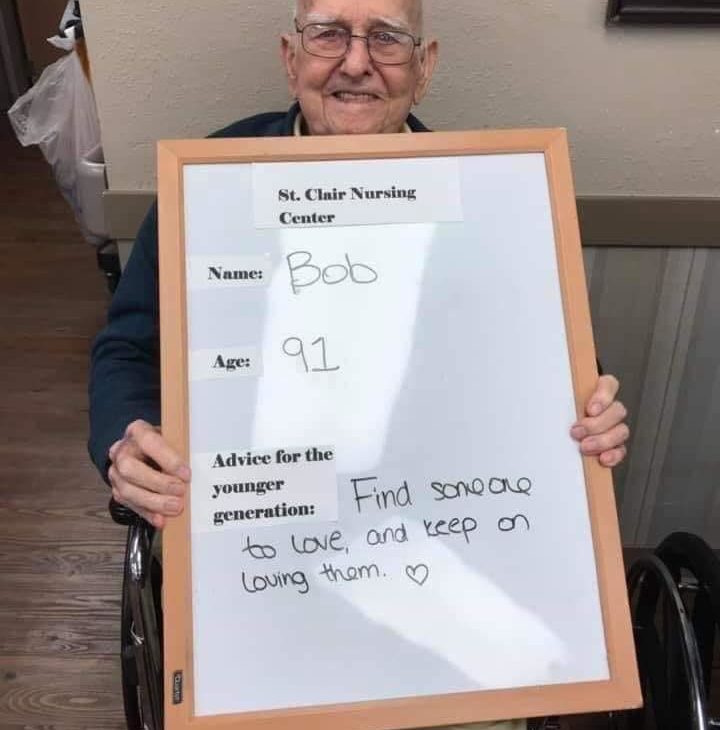 St. Clair Nursing
Center
Name: Bob
Age: 91
Advice for the
younger
generation: Find someone
to love, and keep on
loving them. ♡
Quartet